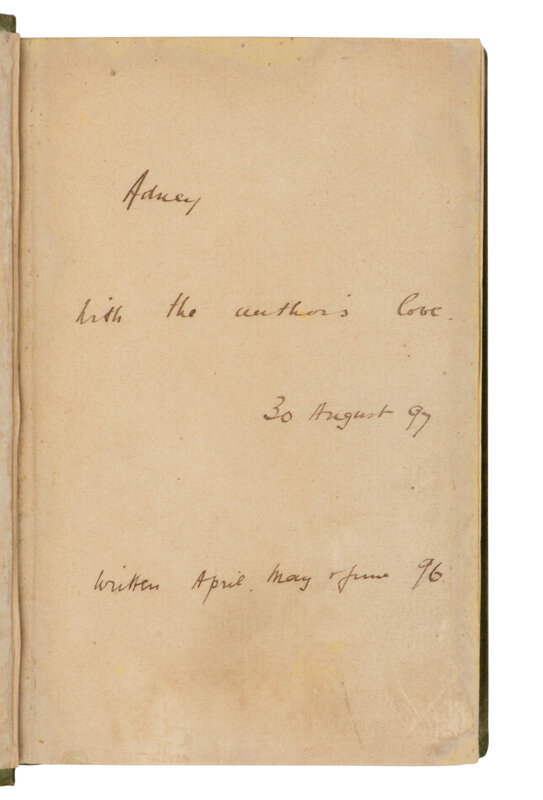 Adney
With the author's love.
30 August 97
Written April, May & June 96